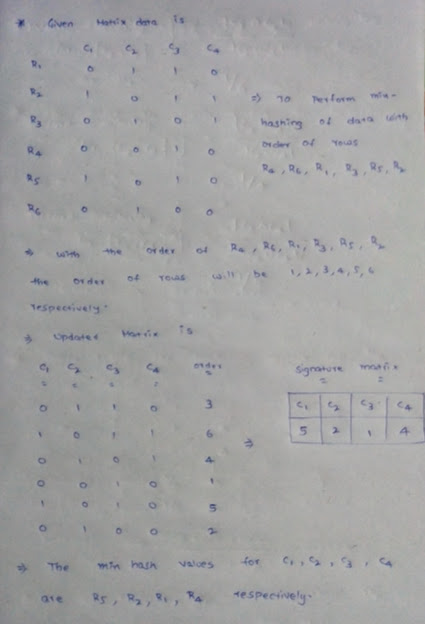 * Given Matrix data is
C1 C2 C3 C4
R1 0 1 1 0
R2 1 0 1 1
R3 0 1 0 1
R4 0 0 1 0
R5 1 0 1 0
R6 0 1 0 0
=> To Perform min-
hashing of data with
order of rows
R4, R6, R1, R3, R5, R2
=> with the order of R4, R6, R1, R3, R5, R2
the order of rows will be 1, 2, 3, 4, 5, 6
respectively.
=> Updated Matrix is
C1 C2 C3 C4 order
0 1 1 0 3
1 0 1 1 6
0 1 0 1 4
0 0 1 0 1
1 0 1 0 5
0 1 0 0 2
=>
Signature matrix
C1 C2 C3 C4
5 2 1 4
=> The min hash values for C1, C2, C3, C4
are R5, R2, R1, R4 respectively.